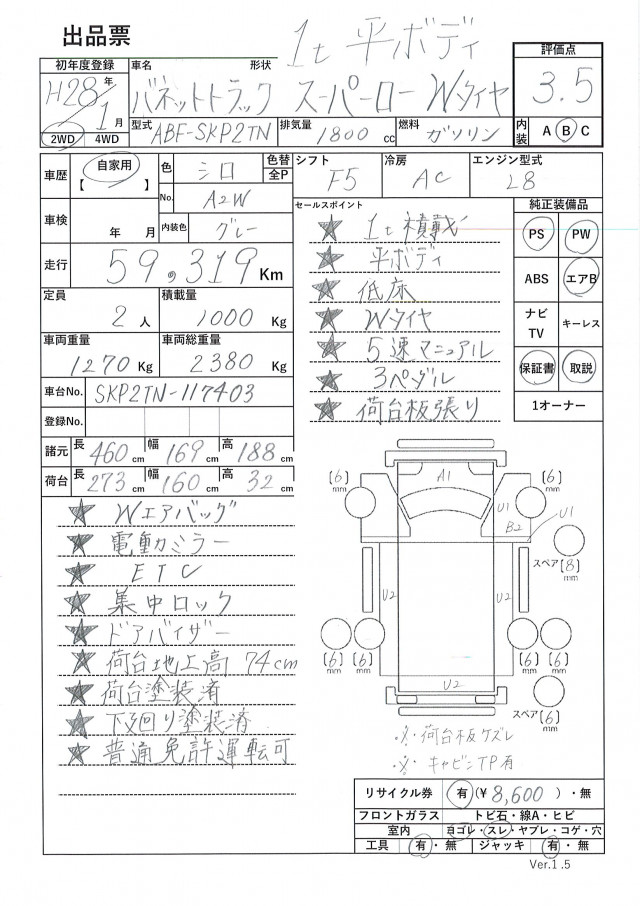 出品票
1t 平ボディ
初年度登録 車名 形状 評価点
H28年 1月 バネットトラック スーパーロー Wタイヤ 3.5
2WD 4WD 型式 ABF-SKP2TN 排気量 1800 cc 燃料 ガソリン 内装 A B C
車歴 自家用 【 】 色 シロ 色替 全P シフト F5 冷房 AC エンジン型式 L8
No. A2W
車検 年 月 内装色 グレー
セールスポイント 純正装備品
★ 1t積載 PS PW
走行 59,319 Km
★ 平ボディ
定員 2 人 積載量 1000 Kg
★ 低床 ABS エアB
★ Wタイヤ ナビ TV キーレス
車両重量 1270 Kg 車両総重量 2380 Kg
★ 5速マニュアル
★ 3ペダル 保証書 取説
車台No. SKP2TN-117403
★ 荷台板張り 1オーナー
登録No.
諸元 長 460 cm 幅 169 cm 高 188 cm
荷台 長 273 cm 幅 160 cm 高 32 cm
★ Wエアバッグ
★ 電動ミラー
★ ETC
★ 集中ロック
★ ドアバイザー
★ 荷台地上高 74cm
★ 荷台塗装済
★ 下廻り塗装済
★ 普通免許運転可
[6] mm A1 [6] mm
U1 B2 U1
スペア [8] mm
U2 U2
[6] mm [6] mm [6] mm [6] mm
U2
スペア [6] mm
※ 荷台板ケズレ
※ キャビンTP有
リサイクル券 有 (¥8,600) ・無
フロントガラス トビ石・線A・ヒビ
室内 ヨゴレ・スレ・ヤブレ・コゲ・穴
工具 有・無 ジャッキ 有・無
Ver.1.5